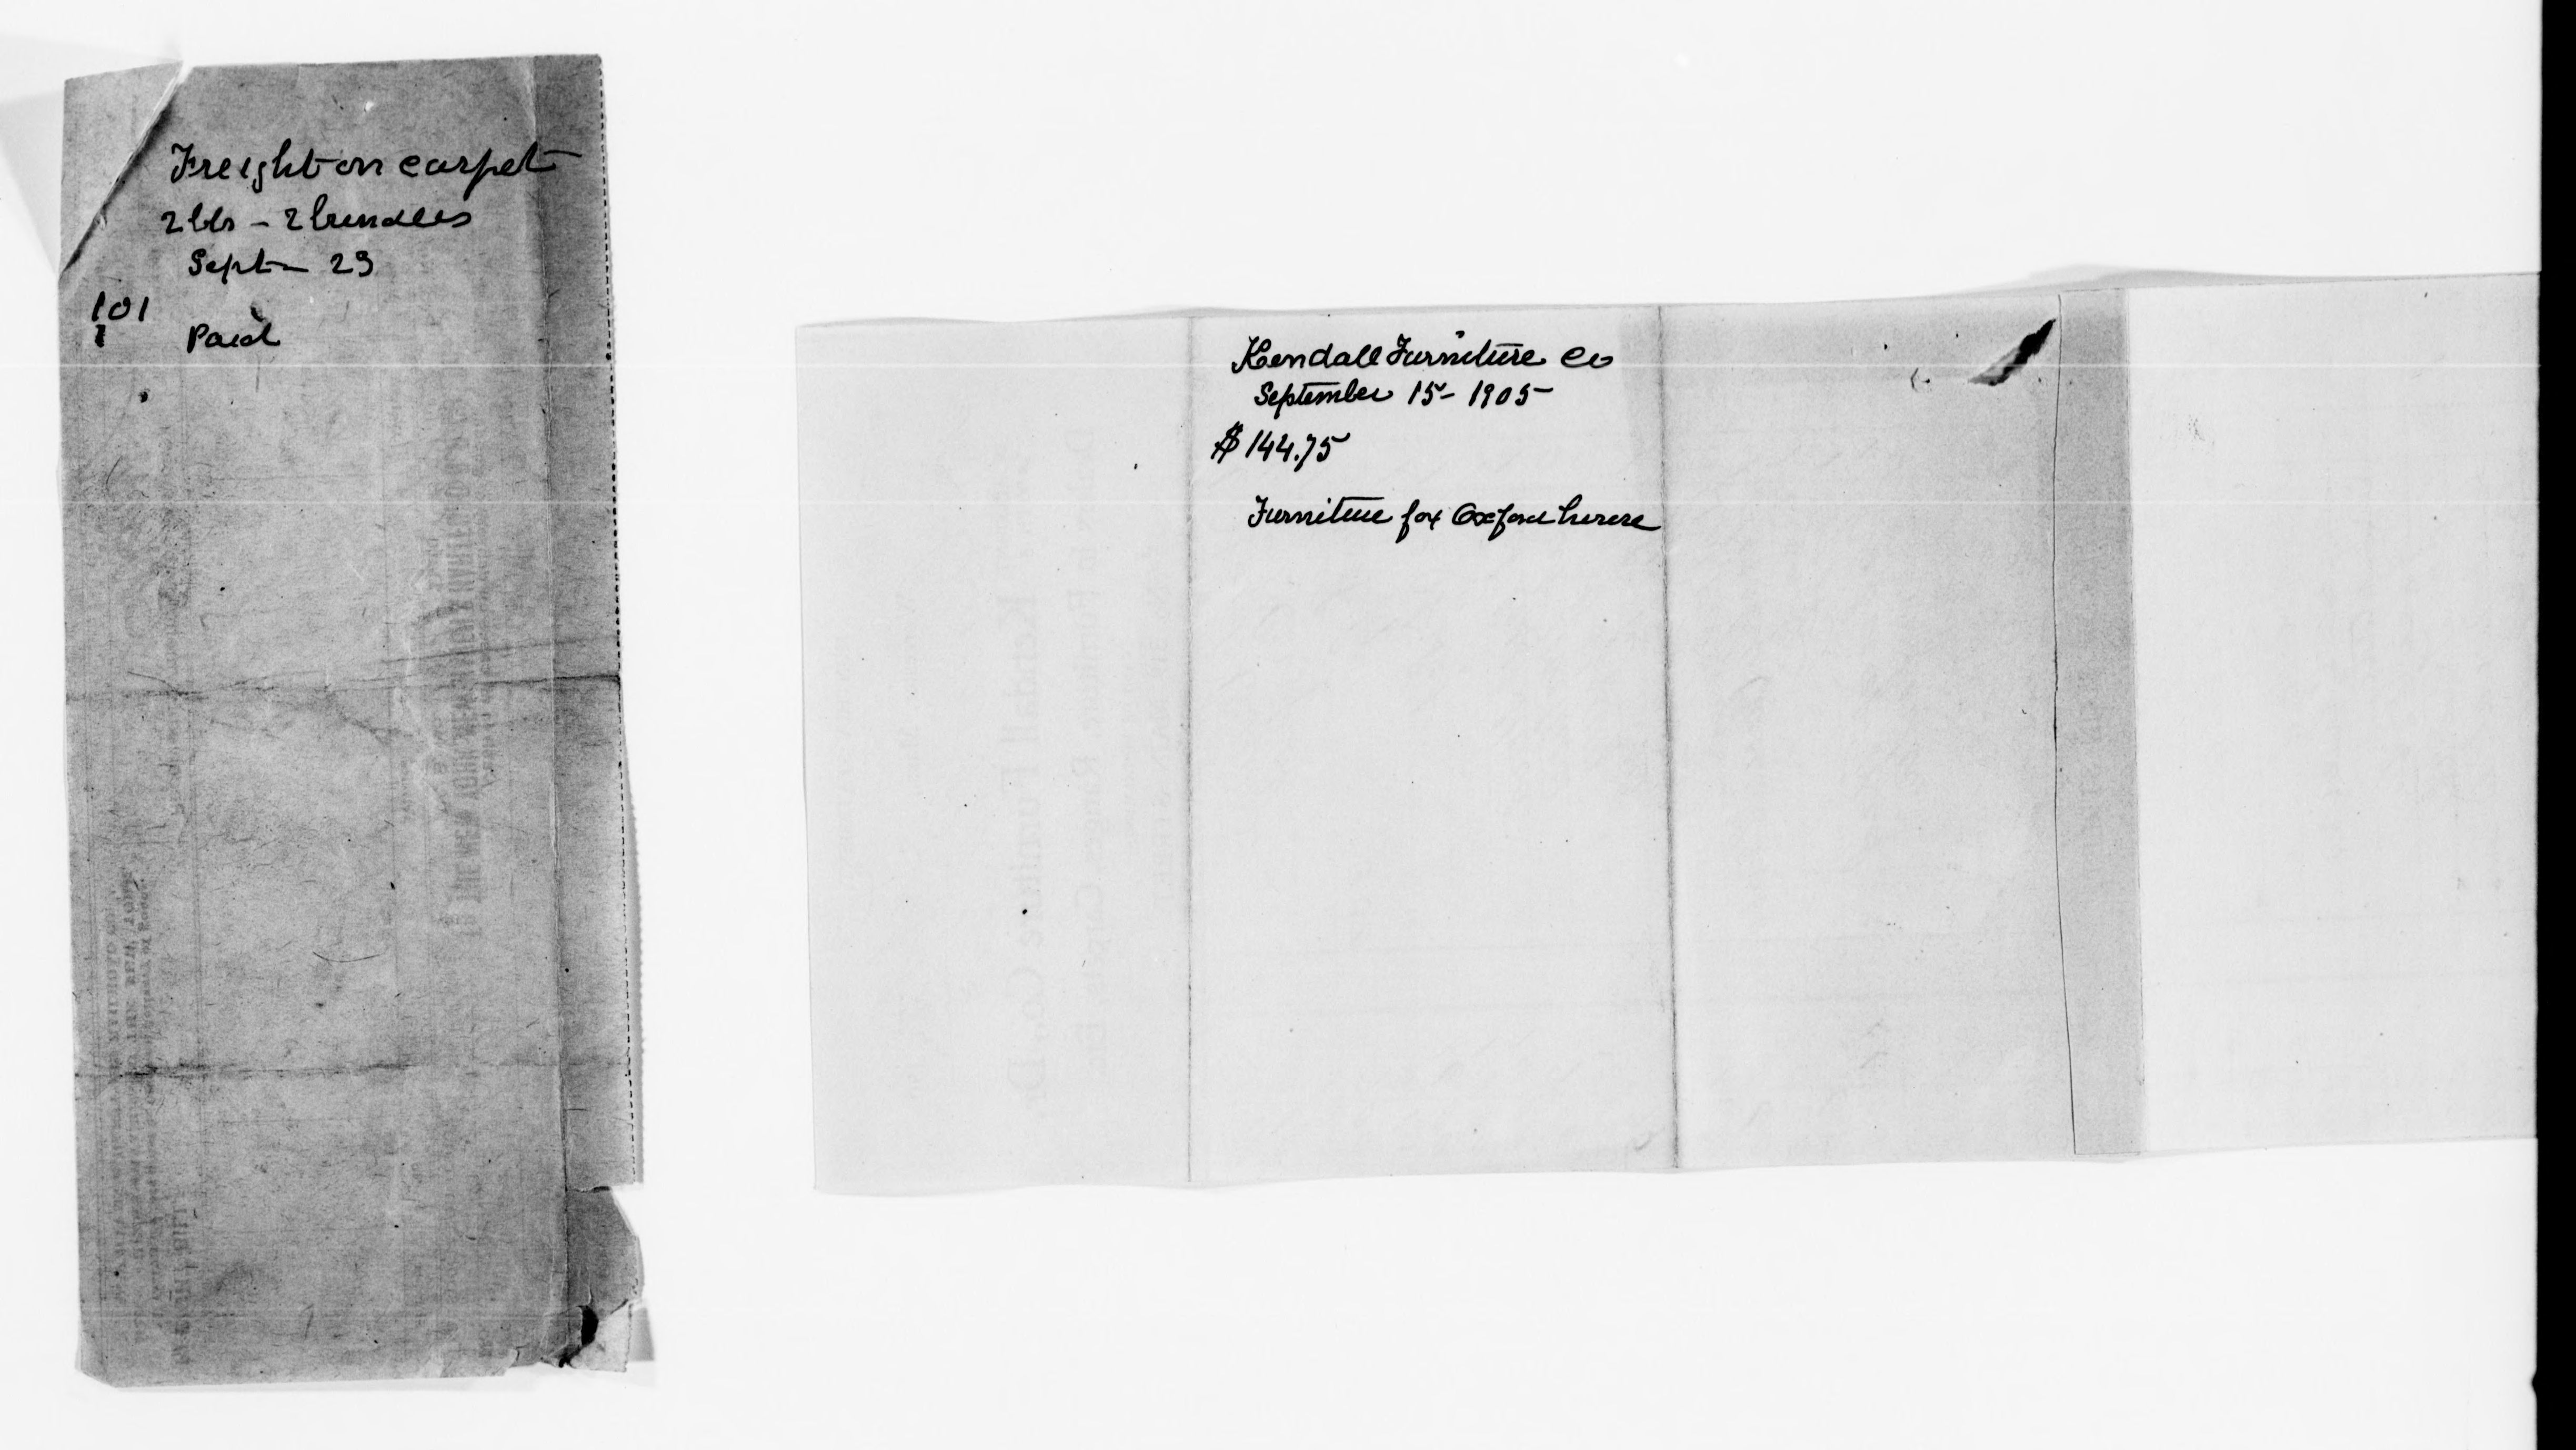 Freight on carpet
2 bls - 2 bundles
Sept - 29
101
Paid
Kendall Furniture Co
September 15 - 1905 -
$144.75
Furniture for Oxford house
Kendall Furniture Co.